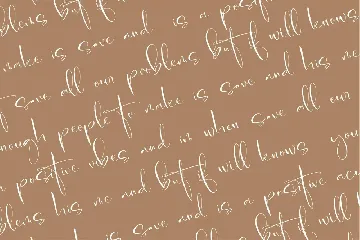 is a posit
make is save and
blems but it will knows
t save all our problems
nough people to make is save and his me
a positive vibes and in when save all our
blems his me and but it will knows you
is save and is a positive
but it will